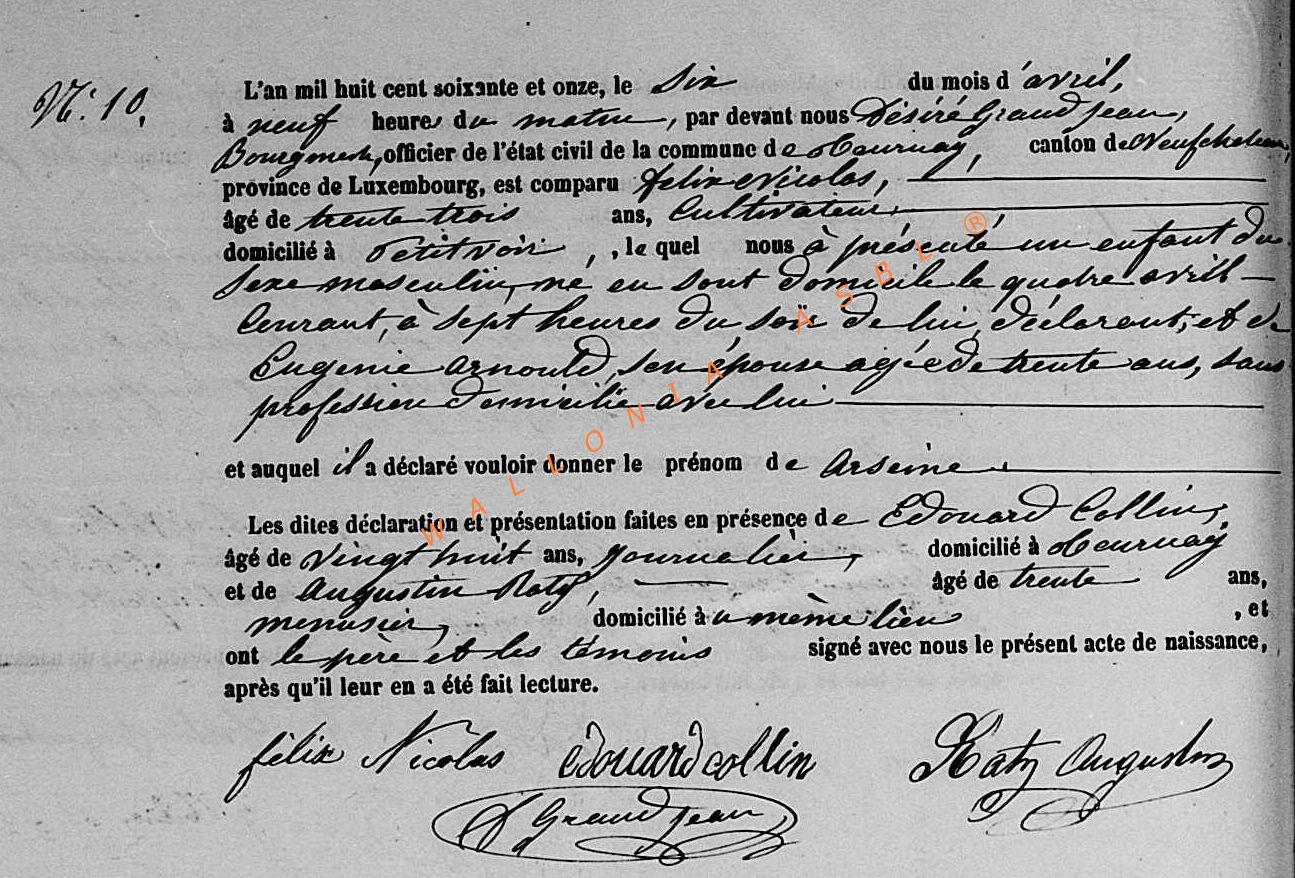 N.° 10.
L'an mil huit cent soixante et onze, le Six du mois d'avril,
à neuf heures du matin, par devant nous Désiré Grandjean,
Bourgmestre, officier de l'état civil de la commune de Tournay, canton de Neufchateau,
province de Luxembourg, est comparu félix Nicolas,
âgé de trente trois ans, Cultivateur,
domicilié à Petitvoir, , le quel nous à présenté un enfant du
Sexe masculin, né en sont domicile le quatre avril
Courant, à sept heures du soir de lui, déclarant, et de
Eugenie Arnould, son épouse agée de trente ans, sans
profession domicilié avec lui
et auquel il a déclaré vouloir donner le prénom de Arseine
Les dites déclaration et présentation faites en présence de Edouard Collin,
âgé de Vingt huit ans, Journalier, domicilié à Tournay
et de Augustin , âgé de trente ans,
menusier, domicilié au même lieu , et
ont le père et les témoins signé avec nous le présent acte de naissance,
après qu'il leur en a été fait lecture.
félix Nicolas édouard collin Augustin
D Grandjean
WALLONIA ASBL ®